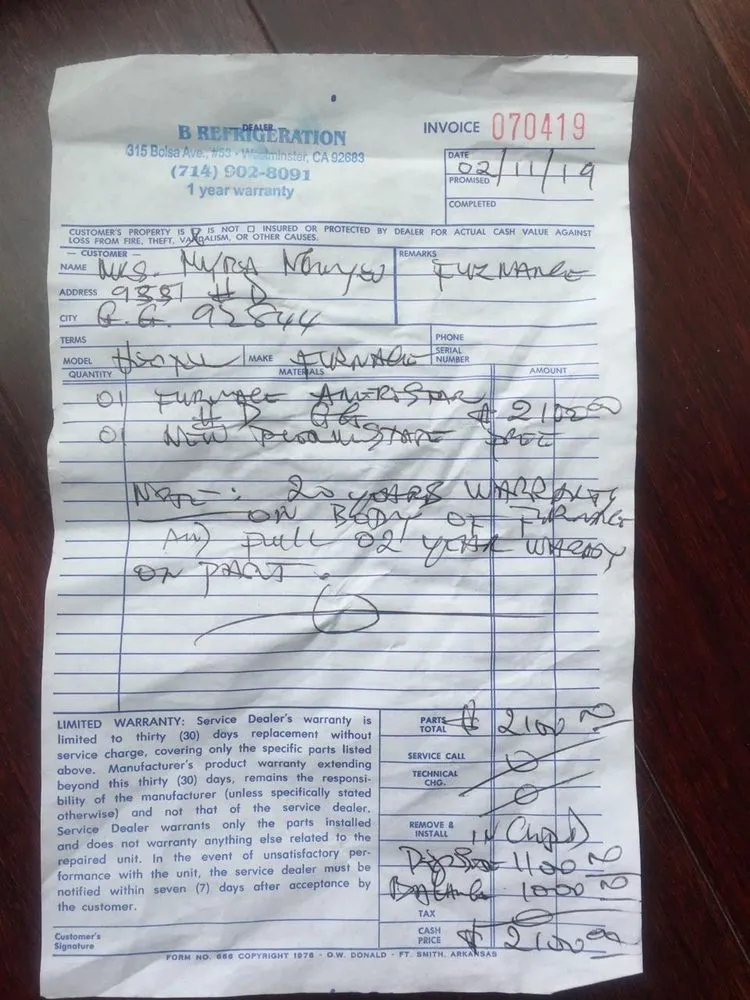 DEALER
B REFRIGERATION
315 Bolsa Ave., #53 - Westminster, CA 92683
(714) 902-8091
1 year warranty
INVOICE 070419
DATE 02/11/19
PROMISED
COMPLETED
CUSTOMER'S PROPERTY IS □ IS NOT □ INSURED OR PROTECTED BY DEALER FOR ACTUAL CASH VALUE AGAINST
LOSS FROM FIRE, THEFT, VANDALISM, OR OTHER CAUSES.
CUSTOMER
NAME MRS. MYRA
REMARKS FURNANCE
ADDRESS 9331 # D
CITY G.G. 92844
TERMS
PHONE
MODEL
MAKE FURNACE
SERIAL NUMBER
QUANTITY MATERIALS AMOUNT
01 FURNACE AMERISTAR
# D GG $ 2100 00
01 NEW FREE
NOTE: 20 YEARS WARRANTY
ON BODY OF FURNACE
AND FULL 02 YEAR WARANTY
ON PART.
LIMITED WARRANTY: Service Dealer's warranty is
limited to thirty (30) days replacement without
service charge, covering only the specific parts listed
above. Manufacturer's product warranty extending
beyond this thirty (30) days, remains the responsi-
bility of the manufacturer (unless specifically stated
otherwise) and not that of the service dealer.
Service Dealer warrants only the parts installed
and does not warranty anything else related to the
repaired unit. In the event of unsatisfactory per-
formance with the unit, the service dealer must be
notified within seven (7) days after acceptance by
the customer.
Customer's
Signature
PARTS TOTAL $ 2100 00
SERVICE CALL 0
TECHNICAL CHG. 0
REMOVE & INSTALL
Deposit 1100 00
Balance 1000 00
TAX 0
CASH PRICE $ 2100 00
FORM NO. 666 COPYRIGHT 1976 - O.W. DONALD - FT. SMITH, ARKANSAS